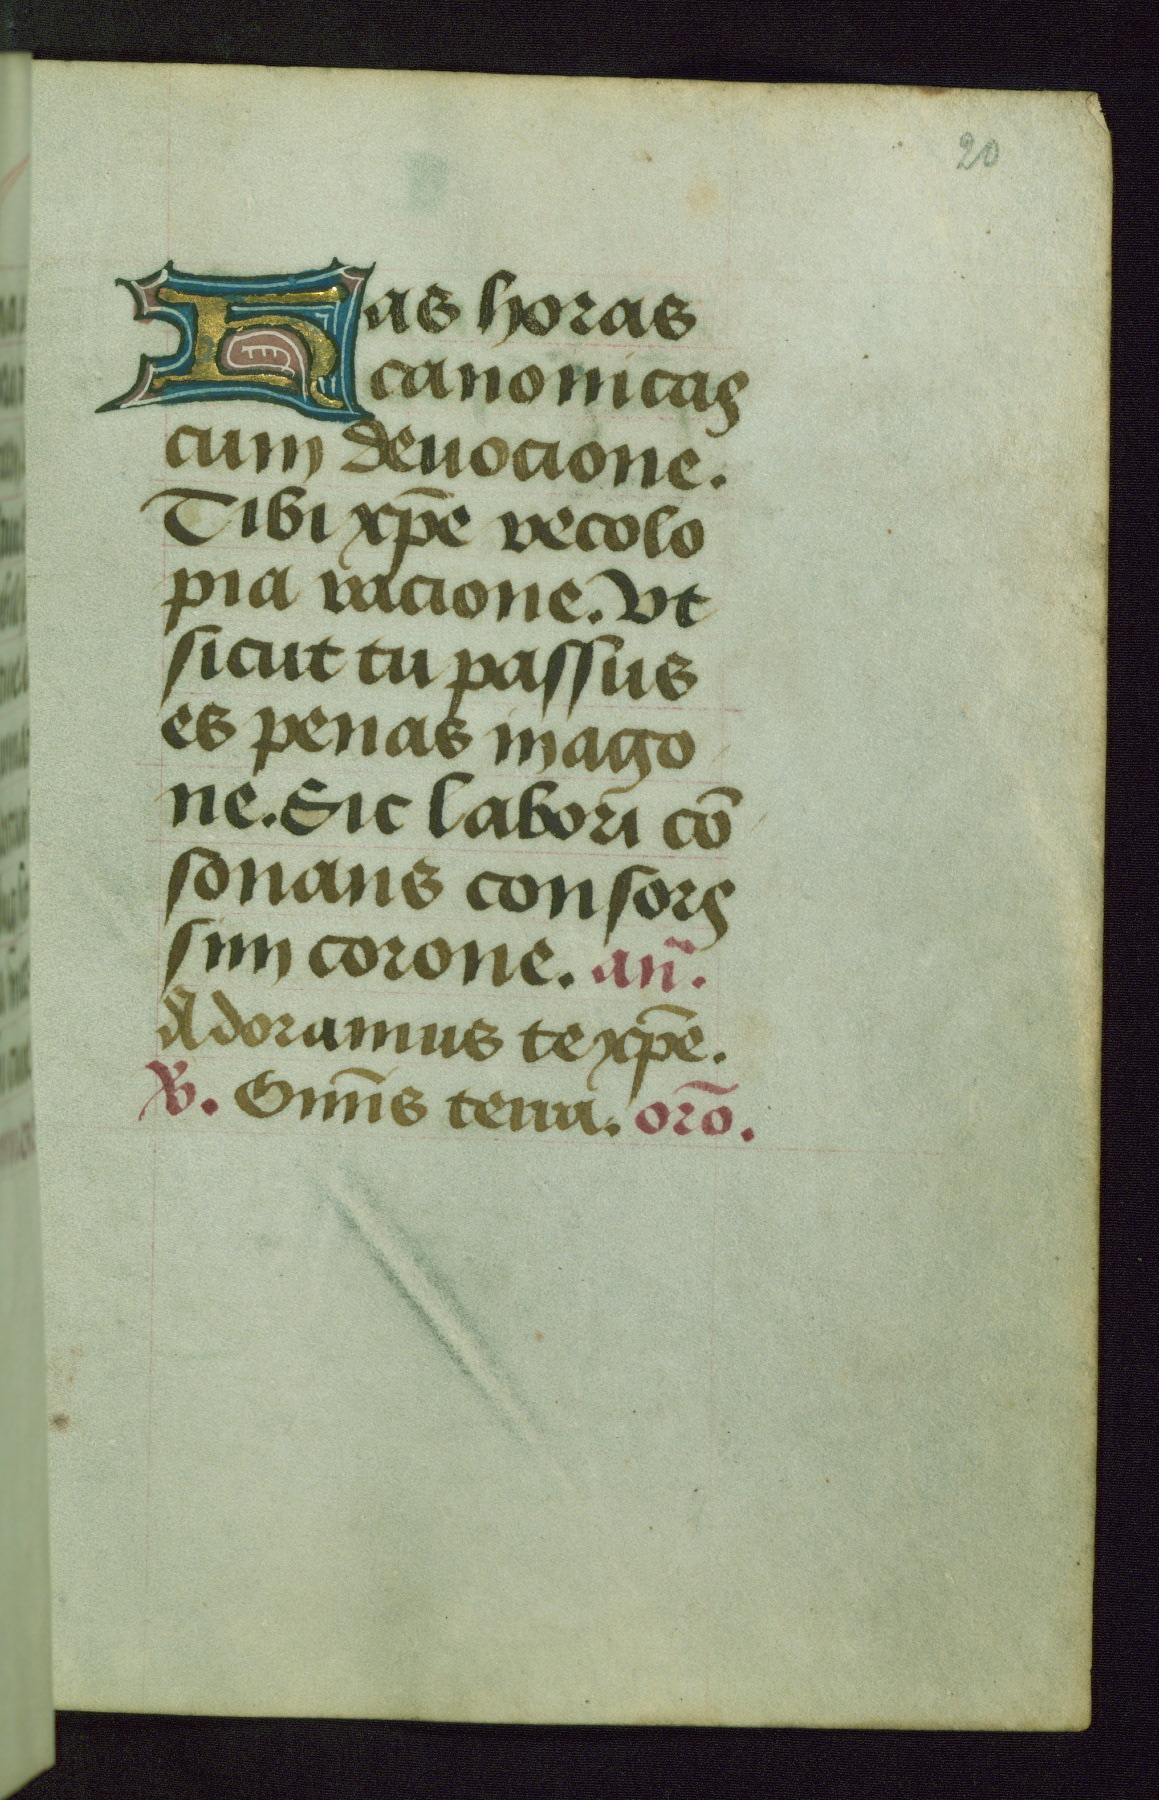 20
Has horas
canonicas
cum deuocione.
Tibi xp̄e recolo
pia racione. Vt
sicut tu passus
es penas in ago
ne. Sic labori cō
sonans consors
sim corone. an̄.
Adoramus te xp̄e.
℟. Om̄s terra. orō.